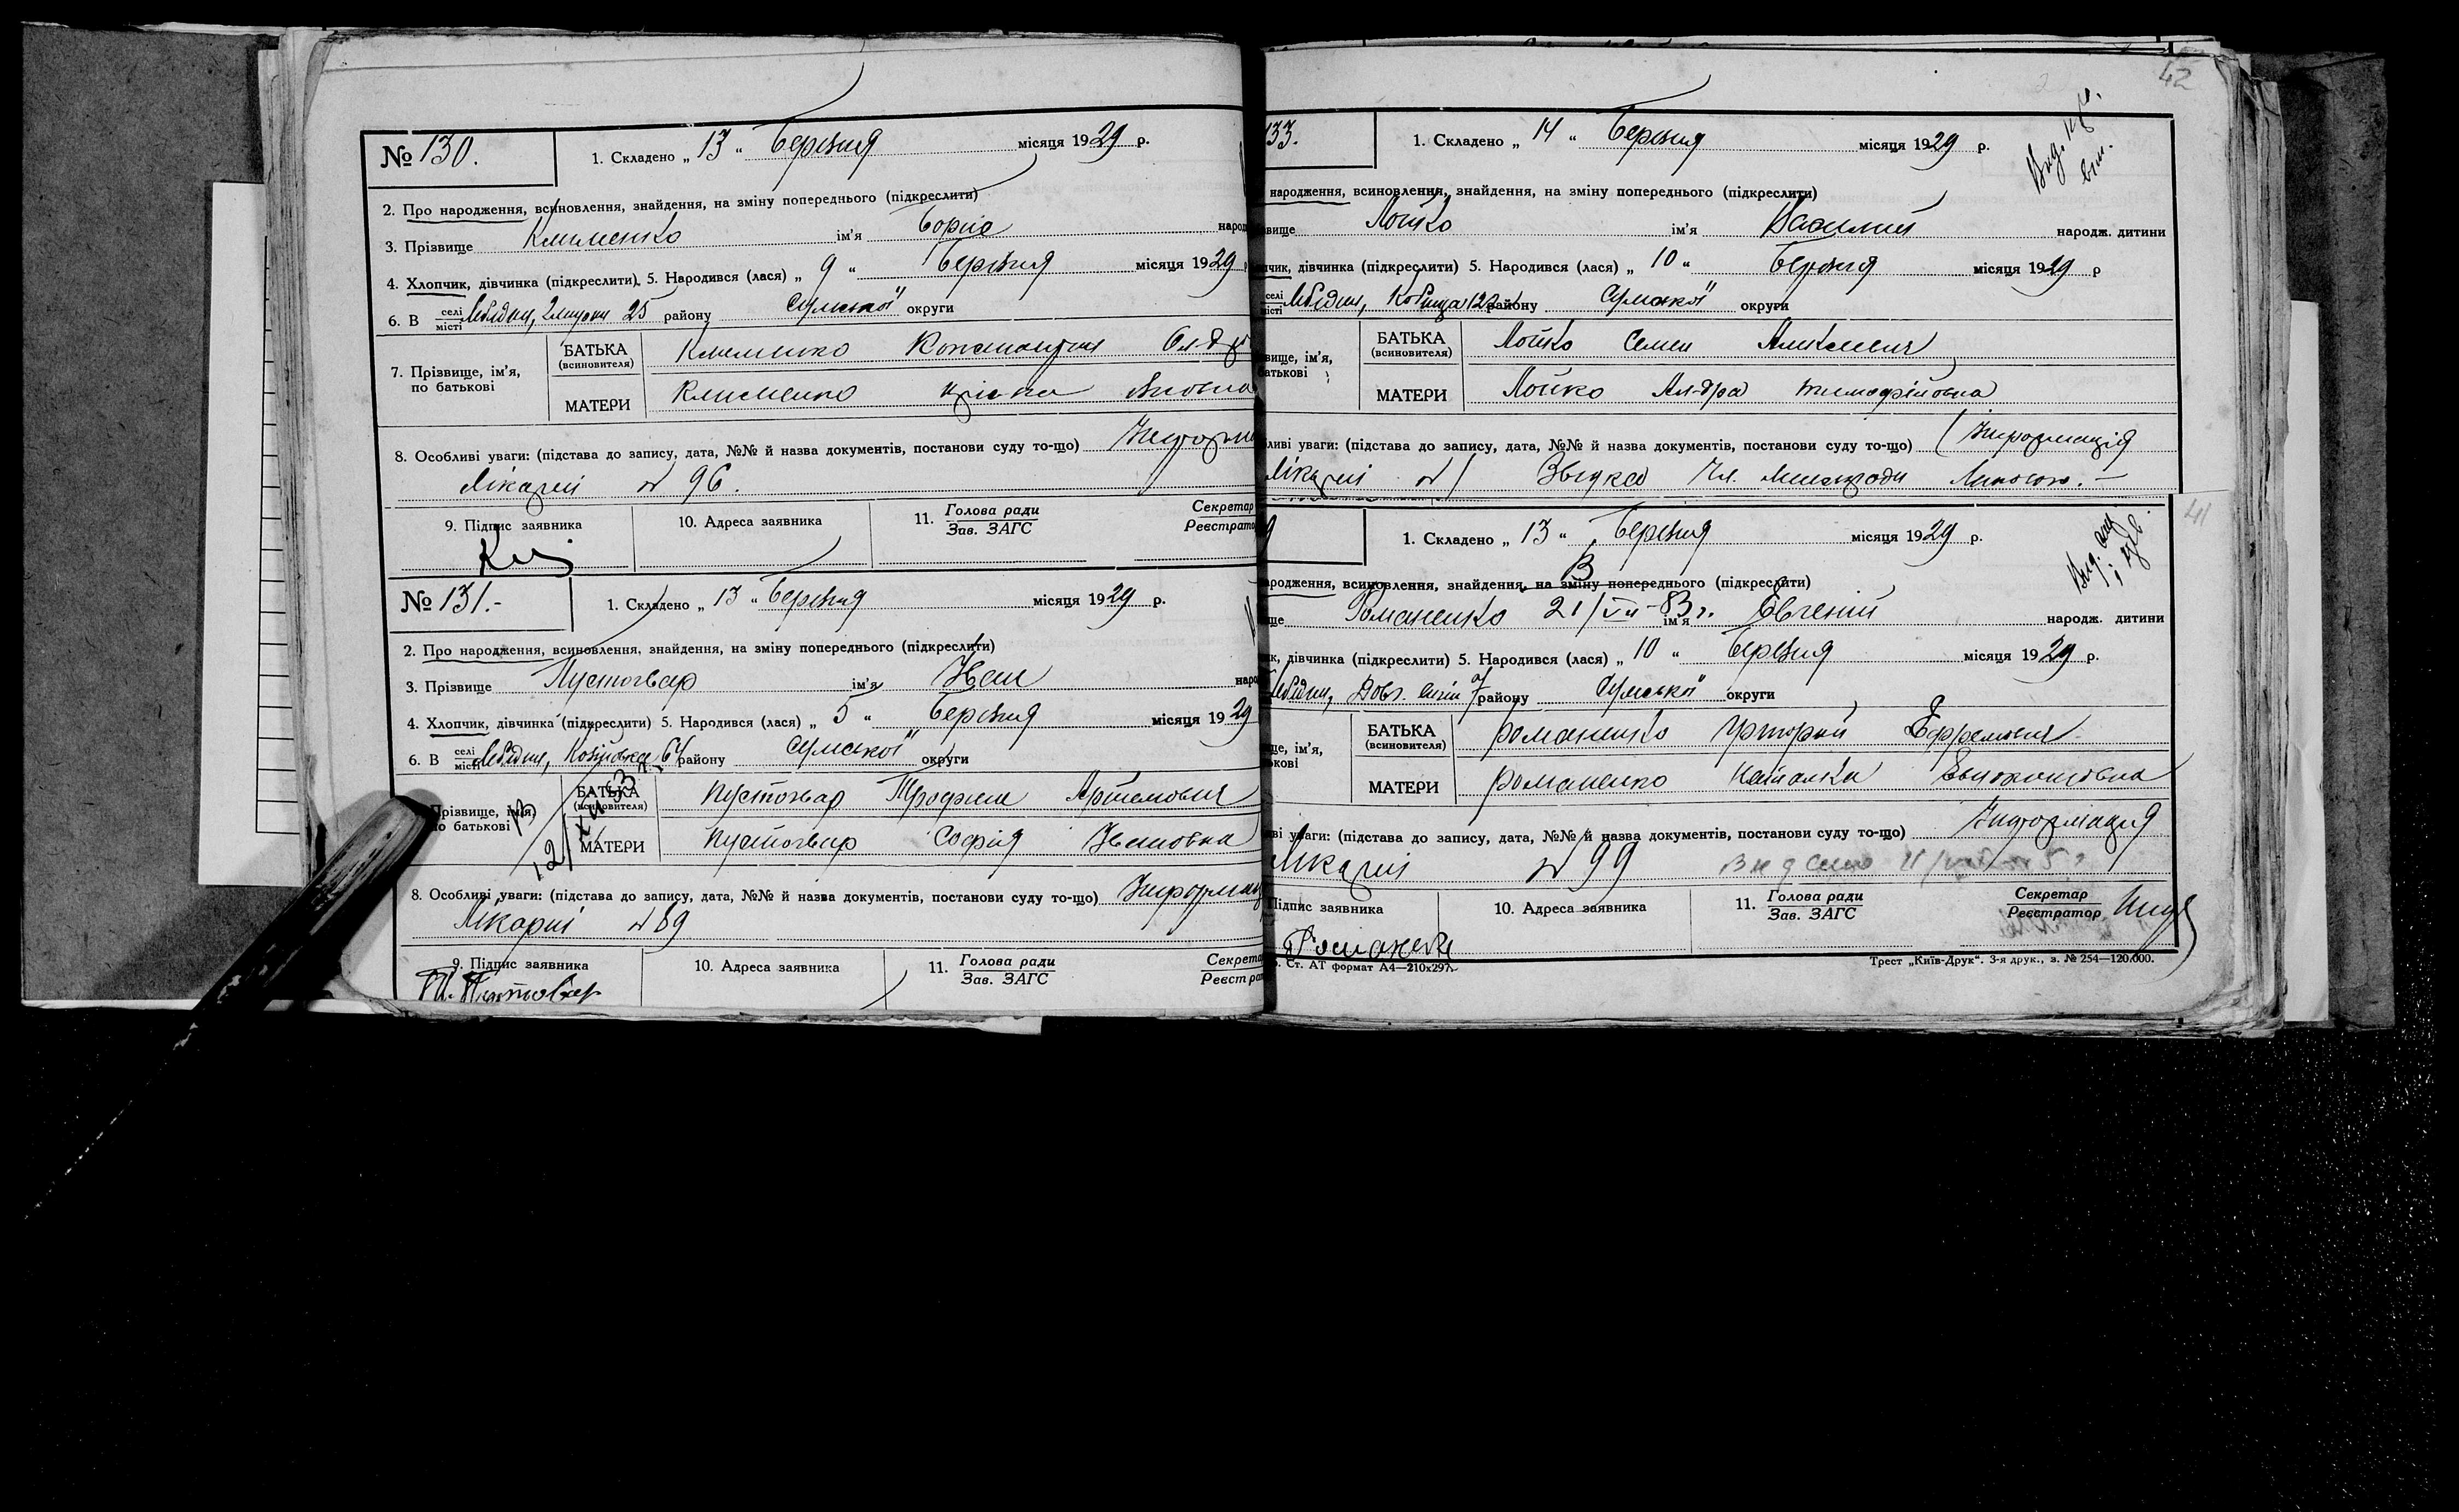 № 130.
1. Складено „ 13 “ Березня місяця 1929 р.
2. Про народження, всиновлення, знайдення, на зміну попереднього (підкреслити)
3. Прізвище Клименко ім'я Борис народ
4. Хлопчик, дівчинка (підкреслити). 5. Народився (лася) „ 9 “ Березня місяця 1929
6. В селі місті Лебедин, 25 району Сумської округи
7. Прізвище, ім'я, по батькові
БАТЬКА (всиновителя) Клименко Констянтин Олд
МАТЕРИ Клименко
8. Особливі уваги: (підстава до запису, дата, №№ й назва документів, постанови суду то-що) Інформ
Лікарні № 96.
9. Підпис заявника 10. Адреса заявника 11. Голова ради Зав. ЗАГС Секретар Реєстрато
№ 131.-
1. Складено „ 13 “ Березня місяця 1929 р.
2. Про народження, всиновлення, знайдення, на зміну попереднього (підкреслити)
3. Прізвище Пустовар ім'я Іван наро
4. Хлопчик, дівчинка (підкреслити) 5. Народився (лася) „ 5 “ Березня місяця 1929
6. В селі місті Лебедин, 64 району Сумської округи
Прізвище, ім'я, по батькові
БАТЬКА (всиновителя) Пустовар Трофим Артемович
МАТЕРИ Пустовар Софія Івановна
8. Особливі уваги: (підстава до запису, дата, №№ й назва документів, постанови суду то-що) Інформац
Лікарні № 89
9. Підпис заявника 10. Адреса заявника 11. Голова ради Зав. ЗАГС Секрета Реєстра
42
133.
1. Складено „ 14 “ Березня місяця 1929 р.
народження, всиновлення, знайдення, на зміну попереднього (підкреслити)
звище Лойко ім'я Василий народж. дитини
пчик, дівчинка (підкреслити) 5. Народився (лася) „ 10 “ Березня місяця 1929 р
селі місті Лебедин, району Сумської округи
звище, ім'я, батькові
БАТЬКА (всиновителя) Лойко Семен Алексеевич
МАТЕРИ Лойко Ал-дра Тимофійовна
бливі уваги: (підстава до запису, дата, №№ й назва документів, постанови суду то-що) Інформація
Лікарні №
41
9
1. Складено „ 13 “ Березня місяця 1929 р.
ародження, всиновлення, знайдення, на зміну попереднього (підкреслити)
ще Романенко 21/VII-83 г. ім'я Євгеній народж. дитини
ик, дівчинка (підкреслити) 5. Народився (лася) „ 10 “ Березня місяця 1929 р.
Лебедин, 7 району Сумської округи
ще, ім'я, ькові
БАТЬКА (всиновителя) Романенко Григорий Ефремович
МАТЕРИ Романенко Наталка
ві уваги: (підстава до запису, дата, №№ й назва документів, постанови суду то-що) Інформация
Лікарні № 99
Підпис заявника 10. Адреса заявника 11. Голова ради Зав. ЗАГС Секретар Реєстратор
Романенко
Ст. АТ формат А4—210х297. Трест „Київ-Друк“. 3-я друк., з. № 254—120.000.